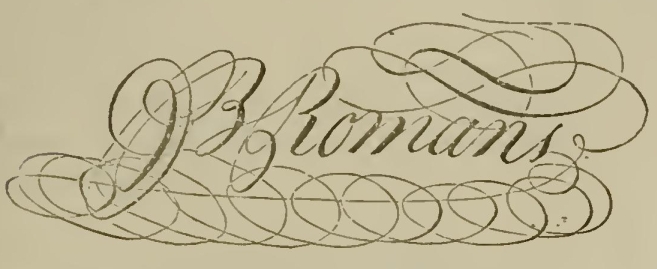 J B Romans.